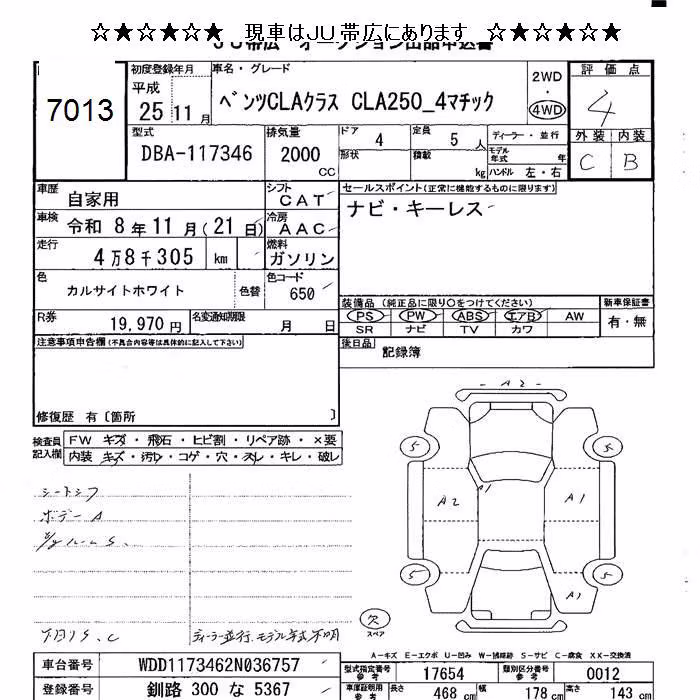 ☆★☆★☆★ 現車はJU帯広にあります ☆★☆★☆★
JU帯広 オークション出品申込書
7013
初度登録年月 平成 25 11月
車名・グレード ベンツCLAクラス CLA250_4マチック
2WD ・ 4WD
評価点 4
外装 内装
C B
型式 DBA-117346
排気量 2000 CC
ドア 4 定員 5人
形状 積載 kg
ディーラー・並行
モデル年式 年
ハンドル 左・右
車歴 自家用
シフト CAT
車検 令和 8年 11月(21日)
冷房 AAC
走行 4万8千305 km
燃料 ガソリン
色 カルサイトホワイト 色替
色コード 650
R券 19,970円
名変通知期限 月 日
セールスポイント(正常に機能するものに限ります)
ナビ・キーレス
装備品(純正品に限り○をつけてください)
PS PW ABS エアB AW
SR ナビ TV カワ
新車保証書 有・無
後日品 記録簿
注意事項申告欄(不具合内容等は具体的に記入して下さい)
修復歴 有〔箇所 〕
検査員記入欄
FW キズ・飛石・ヒビ割・リペア跡・×要
内装 キズ・汚レ・コゲ・穴・スレ・キレ・破レ
シートシワ
ボデーA
ルームS.
下回りS.C
ディーラー並行、モデル年式不明
A2
5 5
A2 A1 A1
5 5
A1
欠 スペア
A-キズ E-エクボ U-凹み W-補修跡 S-サビ C-腐食 XX-交換済
車台番号 WDD1173462N036757
登録番号 釧路 300 な 5367
型式指定番号参考 17654 類別区分番号参考 0012
車庫証明用参考 長さ 468 cm 幅 178 cm 高さ 143 cm